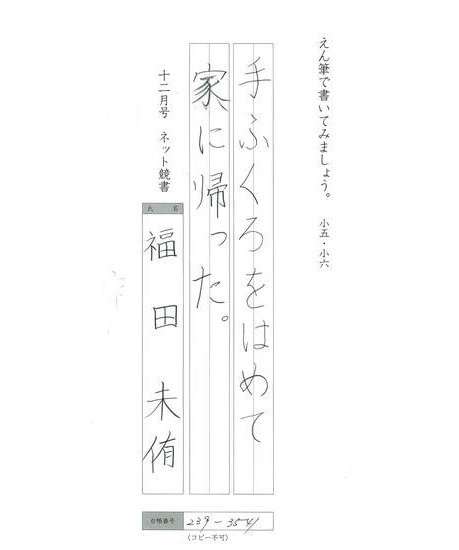 えん筆で書いてみましょう。 小五・小六
手ふくろをはめて
家に帰った。
十二月号 ネット競書
氏名
福田未侑
台帳番号 239-3541
(コピー不可)